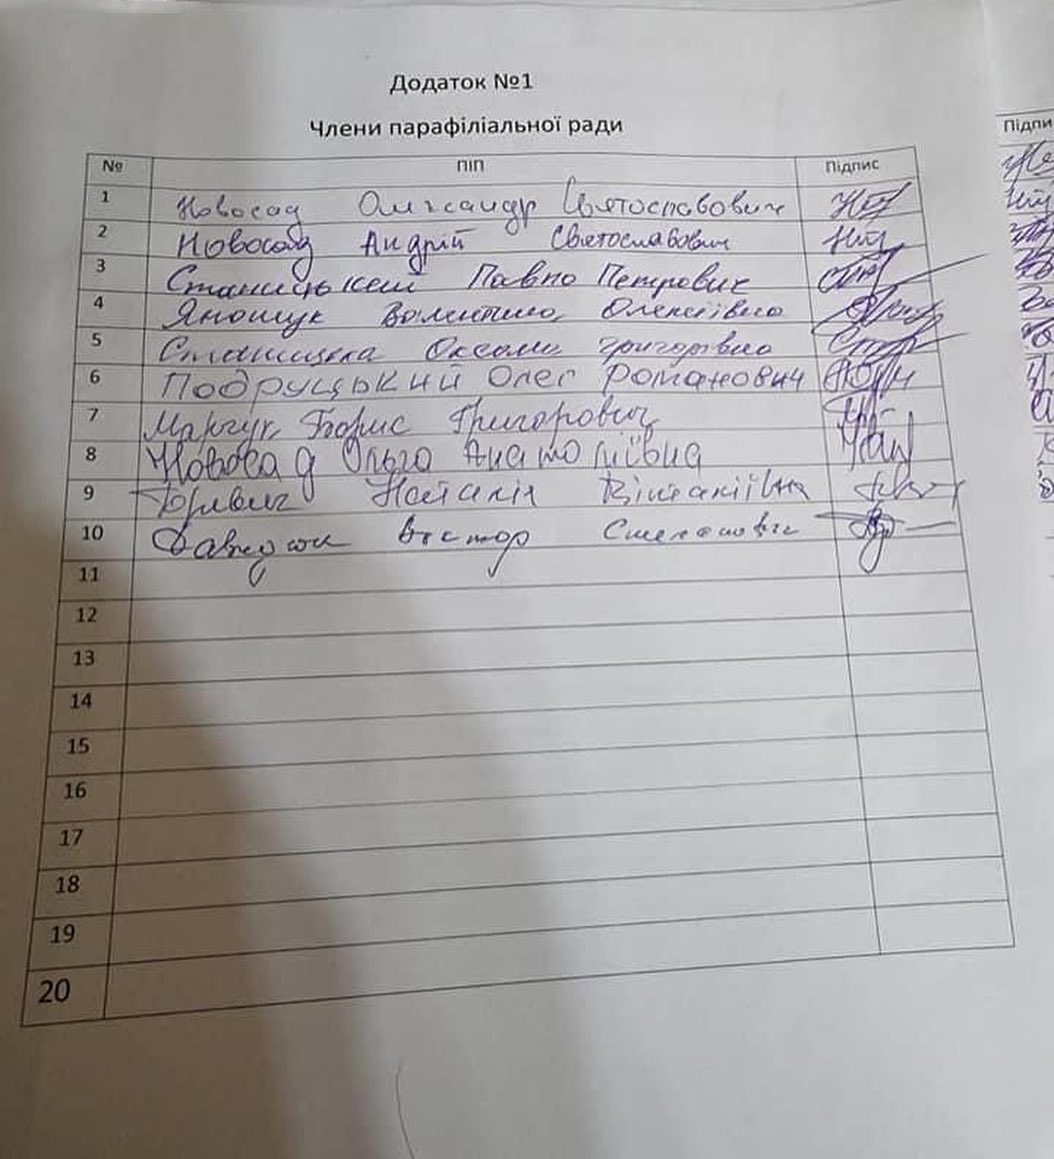 Додаток №1
Члени парафіліальної ради
№ ПІП Підпис
1 Новосад Олександр Святославович
2 Новосад Андрій Святославович
3 Станіцький Павло Петрович
4 Яношук Валентина Олексіївна
5 Станіцька Оксана Григорівна
6 Подруцький Олег Романович
7 Марчук Борис Григорович
8 Новосад Ольга Анатоліївна
9 Наталія Віталіївна
10 Віктор Степанович
11
12
13
14
15
16
17
18
19
20
Підпи